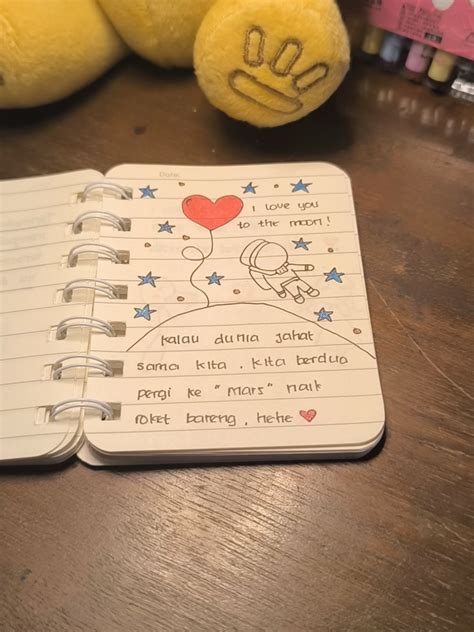 Date:
I love you
to the moon!
kalau dunia jahat
sama kita, kita berdua
pergi ke "Mars" naik
roket bareng, hehe